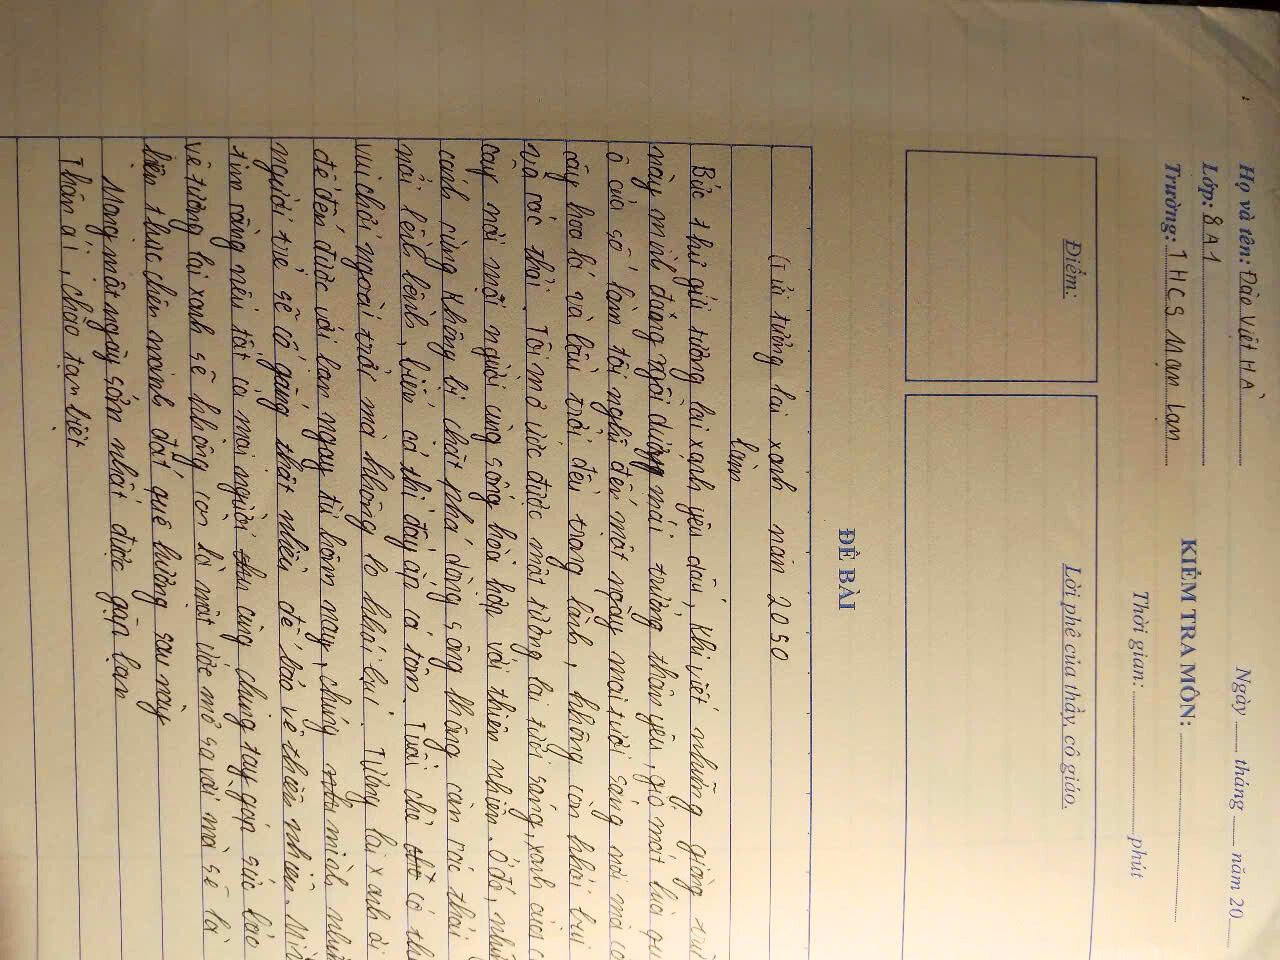 Họ và tên: Đào Việt Hà
Ngày ...... tháng ...... năm 20......
Lớp: 8A1
KIỂM TRA MÔN:
Trường: THCS Mạn Lạn
Thời gian: ...... phút
Điểm:
Lời phê của thầy, cô giáo.
ĐỀ BÀI
tương lai xanh năm 2050
Bức thư gửi tương lai xanh yêu dấu, Khi viết những giòng
này mình đang ngồi dưới mái trường thân yêu, gió mát lùa qu
ô cửa sổ làm tôi nghĩ đến một ngày mai tươi sáng nơi mà c
cây hoa lá và bầu trời đều trong lành, không còn khói bụi
và rác thải. Tôi mơ ước được một tương lai tươi sáng, xanh của c
cây nơi mọi người cùng sống hòa hợp với thiên nhiên. Ở đó, nhữ
cánh rừng không bị chặt phá dòng sông không còn rác thải
nổi lềnh bềnh, biển cả thì đầy ắp cá tôm. Trẻ có th
vui chơi ngoài trời mà không lo khói bụi. Tương lai xanh ơi
để đến được với bạn ngay từ hôm nay, chúng mình nhữ
người trẻ sẽ cố gắng thật nhiều để bảo vệ thiên nhiên. Mìn
tin rằng nếu tất cả mọi người cùng chung tay góp sức bảo
vệ tương lai xanh sẽ không còn là một ước mơ xa vời mà sẽ là
hiện thực trên mảnh đất quê hương sau này
Mong một ngày sớm nhất được gặp bạn
Thân ái, chào tạm biệt